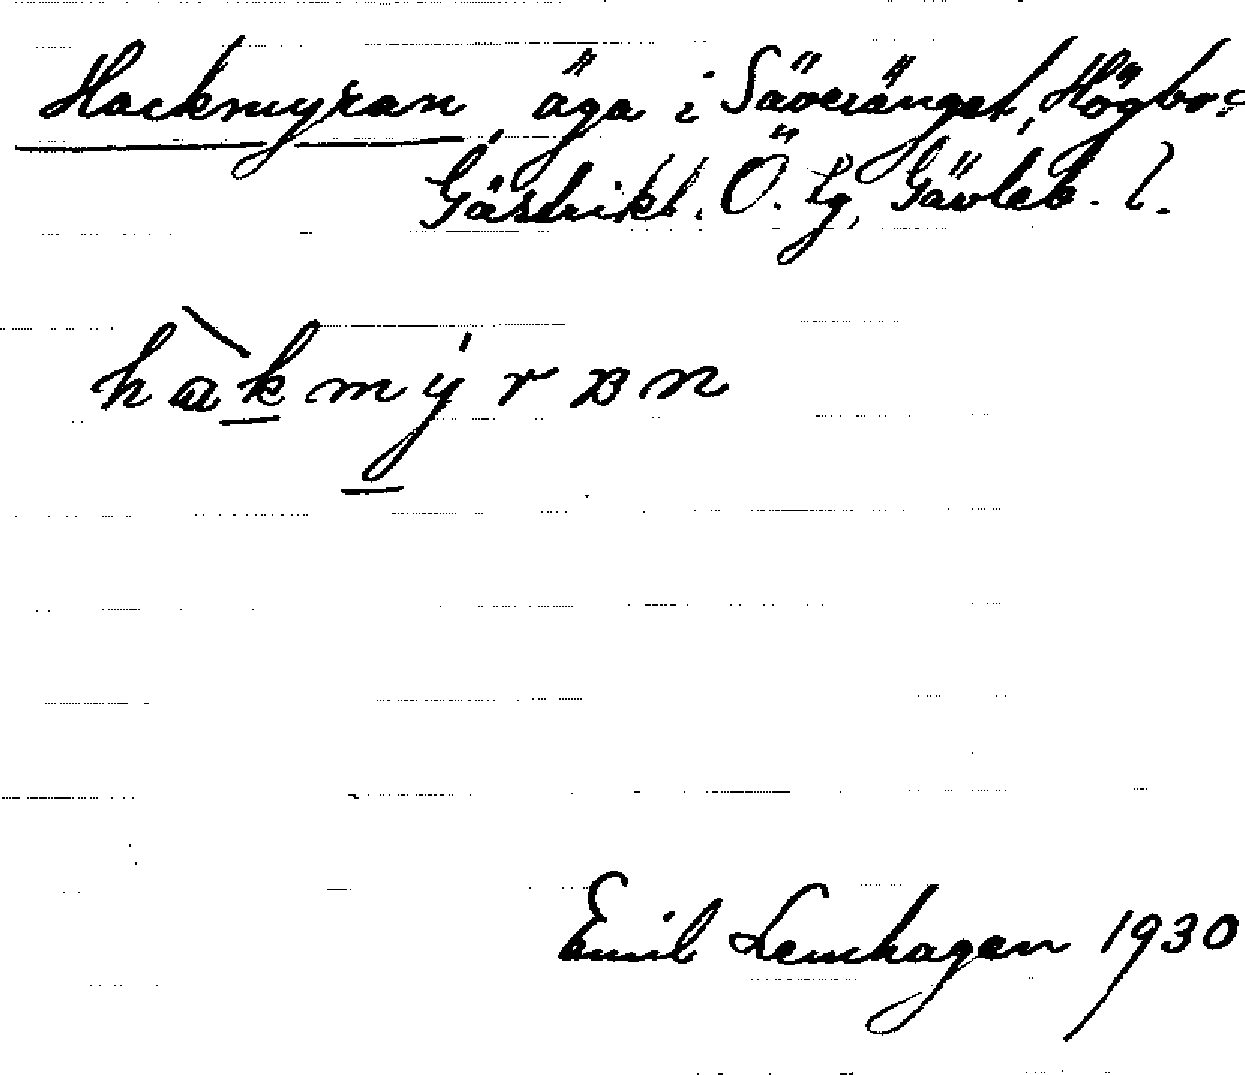 Hackmyran, äga i Säveränget, Högbo s
Gästrikl. Ö. tg, Gävleb. l.
hàkmýrɒn
Emil Lemhagen 1930